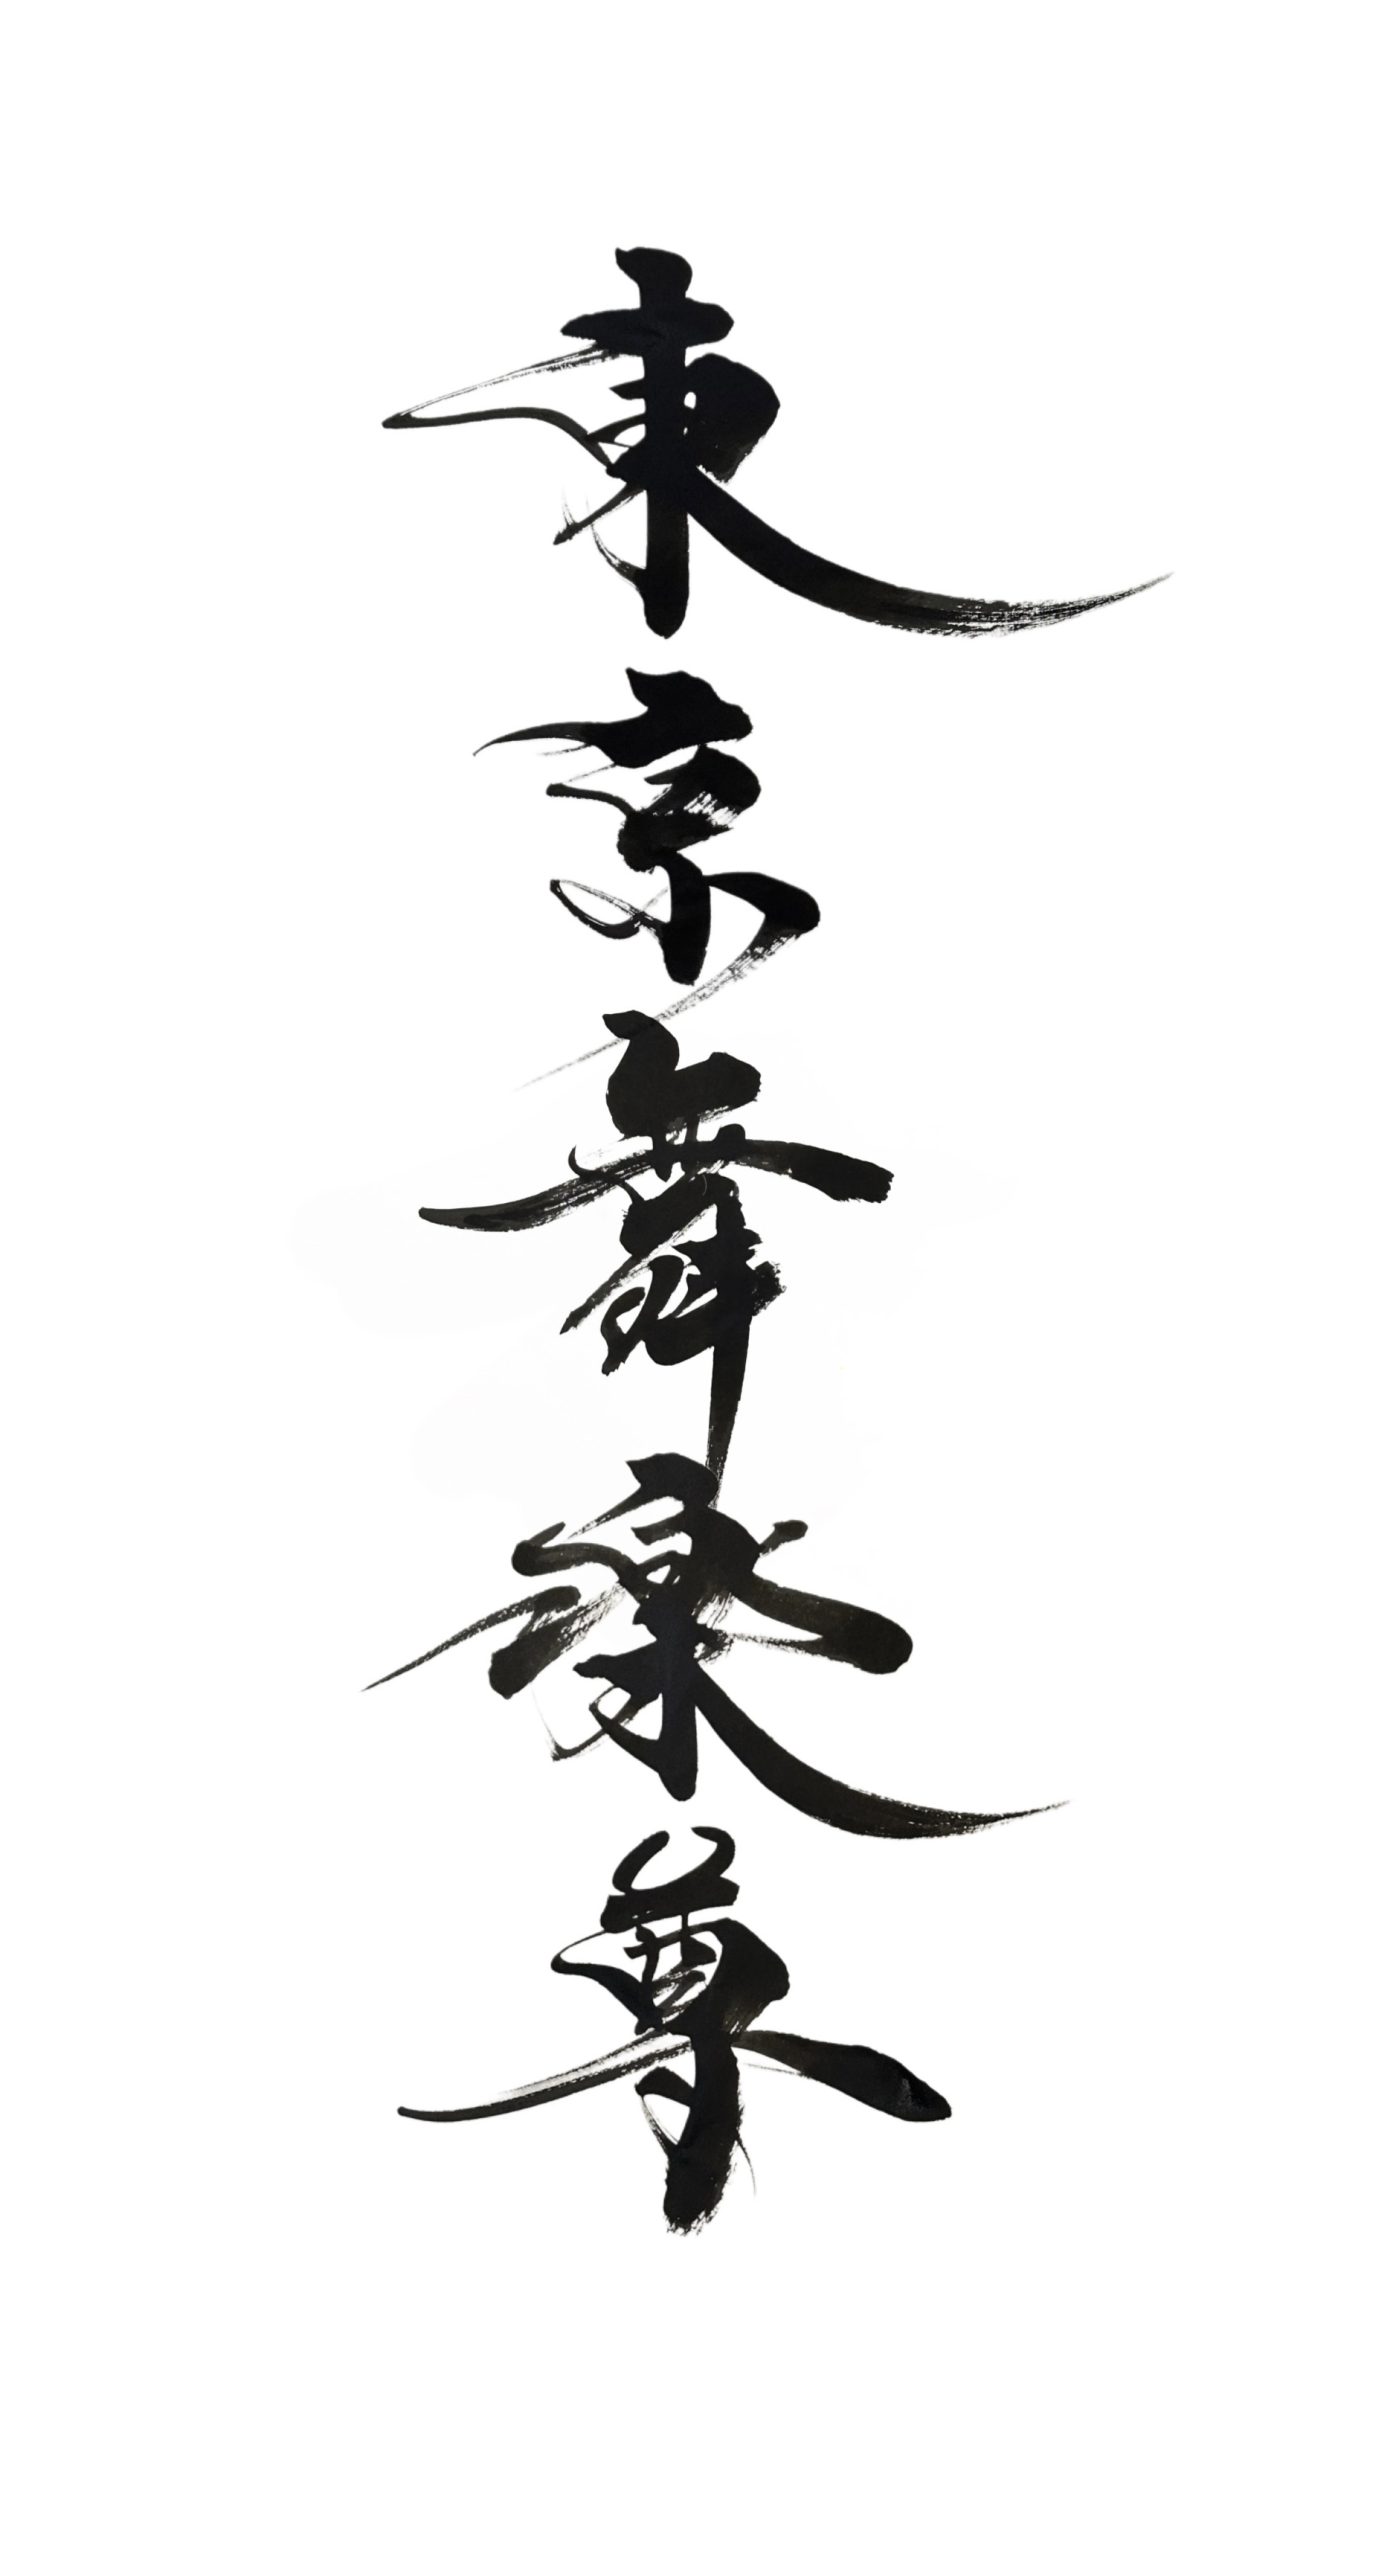 東京舞楽尊